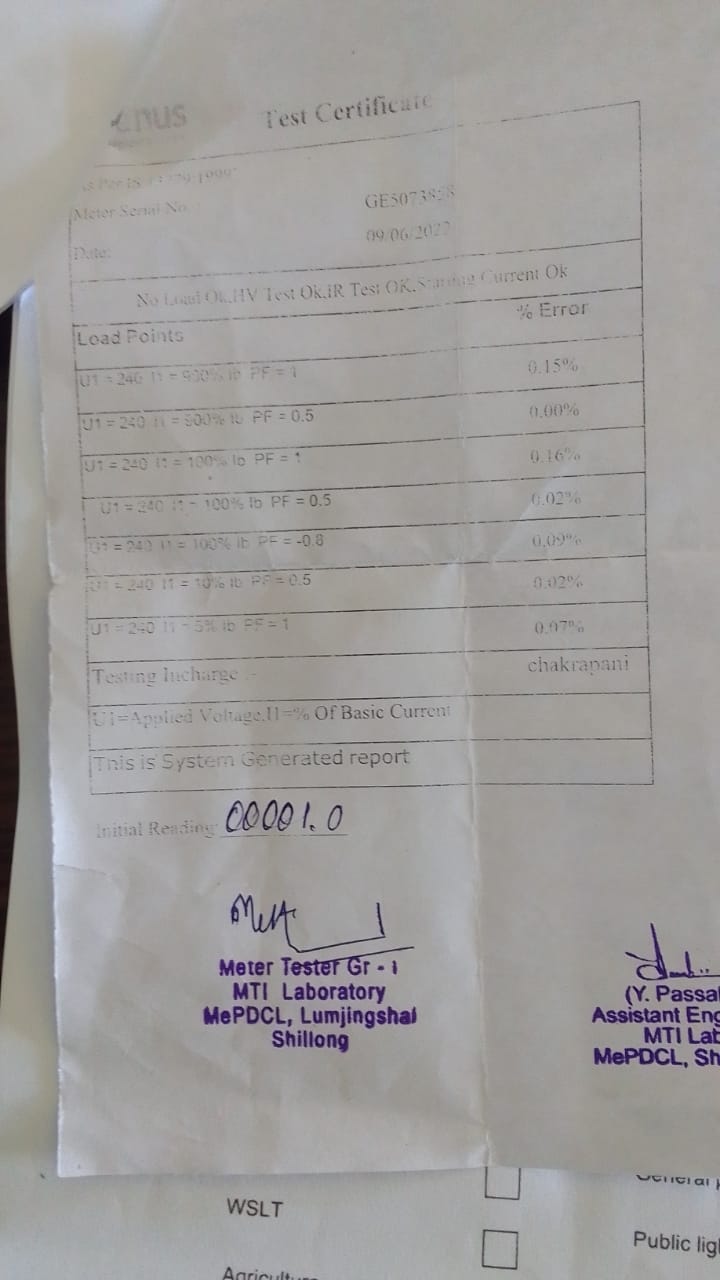 Test Certificate
Meter Serial No
Date: 09/06/2022
No Load Ok,HV Test Ok,IR Test OK,Starting Current Ok
Load Points % Error
U1 = 240 I1 = % Ib PF = 1 0.15%
U1 = 240 I1 = % Ib PF = 0.5 0.00%
U1 = 240 I1 = 100% Ib PF = 1 0.16%
U1 = 240 I1 = 100% Ib PF = 0.5 0.02%
U1 = 240 I1 = 100% Ib PF = -0.8 0.09%
U1 = 240 I1 = 10% Ib PF = 0.5 0.02%
U1 = 240 I1 = 5% Ib PF = 1 0.07%
Testing Incharge :- chakrapani
U1=Applied Voltage,I1=% Of Basic Current
This is System Generated report
Initial Reading 00001.0
Meter Tester Gr - 1
MTI Laboratory
MePDCL, Lumjingshai
Shillong
(Y. Passa
Assistant Eng
MTI Lab
MePDCL, Sh
WSLT
General p
Public lig
Agricultu